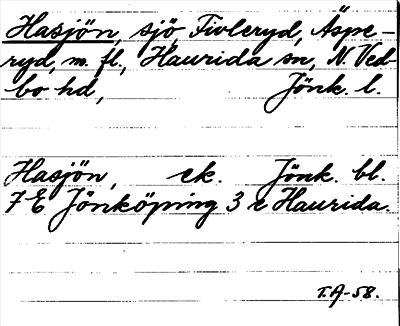 Hasjön, sjö, Tivleryd, Äspe-
ryd, m. fl., Haurida sn, N. Ved-
bo hd, Jönk. l.
Hasjön, ek. Jönk. bl.
7E Jönköping 3 e Haurida.
T.A-58.